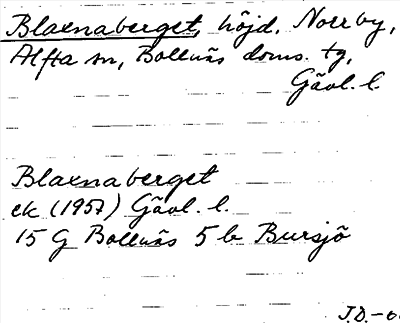 Blaxnaberget, höjd, Norrby,
Alfta sn, Bollnäs doms. tg,
Gävl. l.
Blaxnaberget
ek (1957) Gävl. l.
15 G Bollnäs 5 b Bursjö
J.D.-6